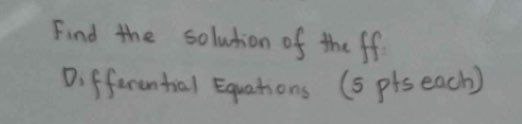 Find the solution of the ff:
Differential Equations (5 pts each)